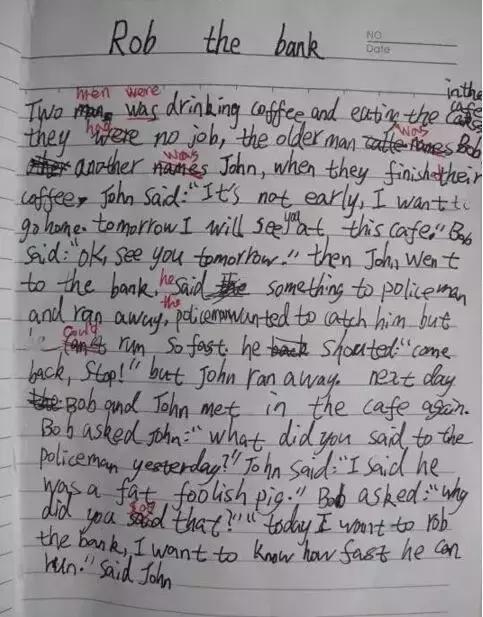 Rob the bank
NO
Date
men were in the
Two was drinking coffee and eating the cakes cafe
they had were no job, the older man names was Bob
another names was John, when they finished their
coffee, John said:"It's not early, I want to
go home. tomorrow I will see you at this cafe." Bob
said:"ok, see you tomorrow." then John went
to the bank. he said something to policeman
and ran away, the policeman wanted to catch him but
could
run so fast. he back shouted:"come
back, stop!" but John ran away. next day
the Bob and John met in the cafe again.
Bob asked John:"what did you said to the
policeman yesterday?" John said:"I said he
was a fat foolish pig." Bob asked:"why
did you said say that?" "today I want to rob
the bank, I want to know how fast he can
run." said John